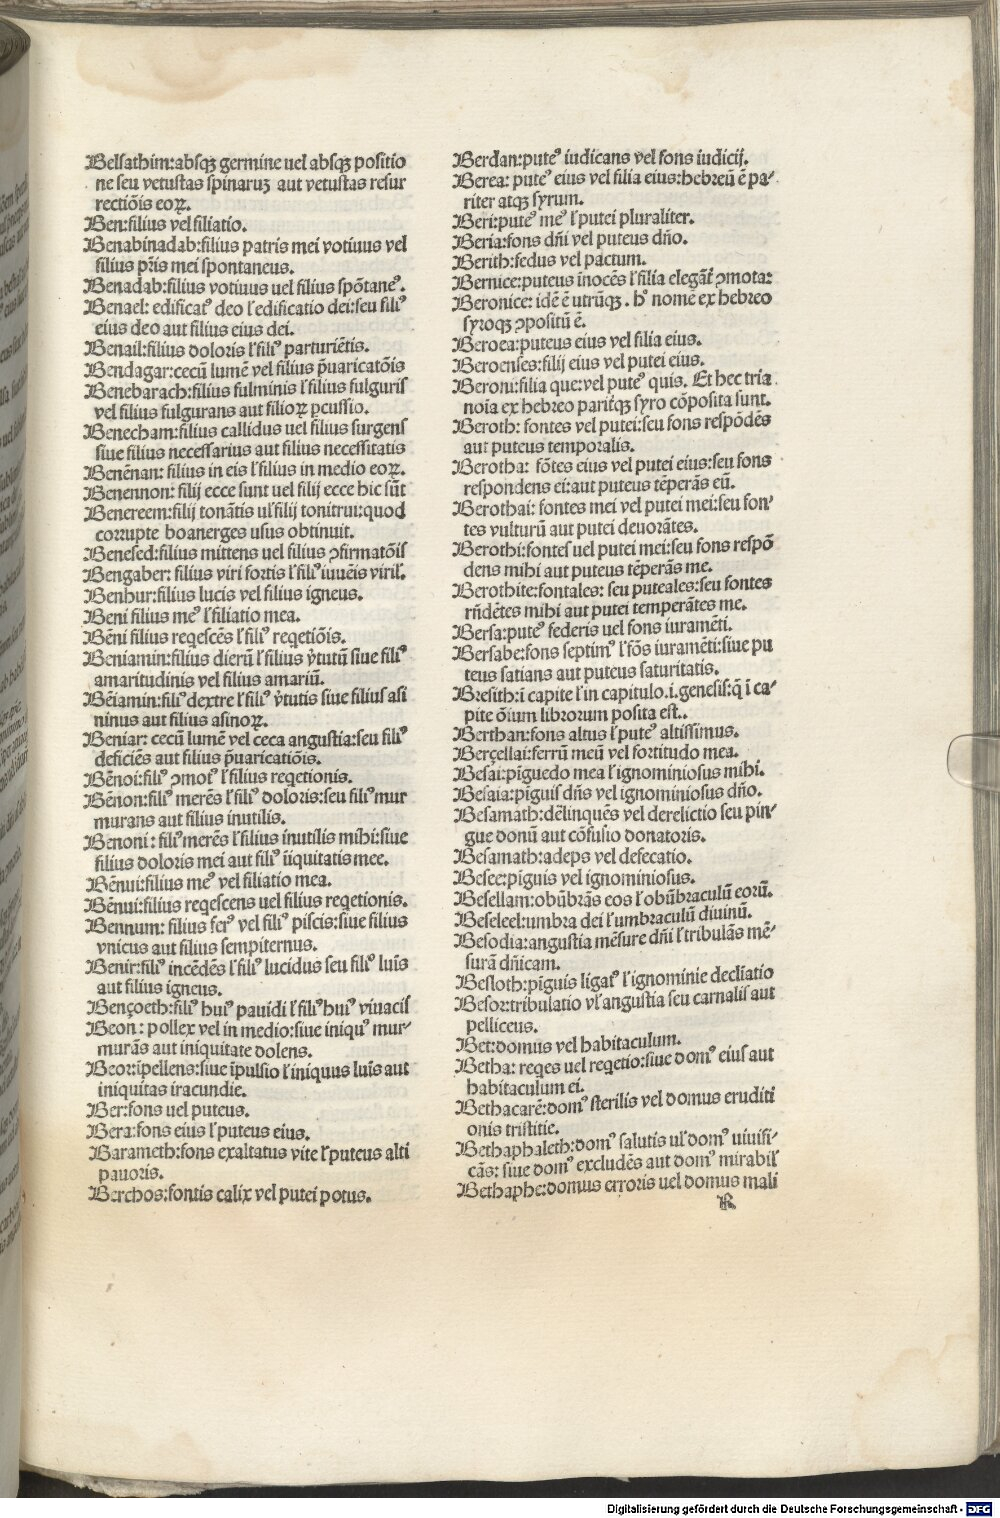 Belsathim:absqꝫ germine uel absqꝫ positio
ne seu vetustas spinaruꝫ aut vetustas resur
rectiõis eoꝝ.
Ben:filius vel filiatio.
Benabinadab:filius patris mei votiuus vel
filius pr̃is mei spontaneus.
Benadab:filius votiuus uel filius spõtaneꝰ.
Benael: edificatꝰ deo ł edificatio dei:seu filiꝰ
eius deo aut filius eius dei.
Benail:filius doloris ł filiꝰ parturiẽtis.
Bendagar:cecũ lumẽ vel filius p̃uaricatõis
Benebarach:filius fulminis ł filius fulguris
vel filius fulgurans aut filioꝝ ꝑcussio.
Benecham:filius callidus uel filius surgens
siue filius necessarius aut filius necessitatis
Benẽnan: filius in eis ł filius in medio eoꝝ.
Benennon: filij ecce sunt uel filij ecce hic sũt
Benereem:filij tonãtis ul̃ filij tonitrui:quod
corrupte boanerges usus obtinuit.
Benesed:filius mittens uel filius ꝯfirmatõis
Bengaber: filius viri fortis ł filiꝰ iuuẽis viril̃.
Benhur:filius lucis vel filius igneus.
Beni filius meꝰ ł filiatio mea.
Bẽni filius reqescẽs ł filiꝰ reqetiõis.
Beniamin:filius dierũ ł filius ỹtutũ siue filiꝰ
amaritudinis vel filius amariũ.
Bẽiamin:filiꝰ dextre ł filiꝰ ỹtutis siue filius asi
ninus aut filius asinoꝝ.
Beniar: cecũ lumẽ vel ceca angustia:seu filiꝰ
deficiẽs aut filius p̃uaricatiõis.
Bẽnoi:filiꝰ ꝯmotꝰ ł filius reqetionis.
Bẽnon:filiꝰ merẽs ł filiꝰ doloris:seu filiꝰ mur
murans aut filius inutilis.
Benoni: filiꝰ merẽs ł filius inutilis mihi:siue
filius doloris mei aut filiꝰ ĩiquitatis mee.
Bẽnui:filius meꝰ vel filiatio mea.
Bẽnui:filius reqescens uel filius reqetionis.
Bennum: filius ferꝰ vel filiꝰ piscis:siue filius
vnicus aut filius sempiternus.
Benir:filiꝰ incẽdẽs ł filiꝰ lucidus seu filiꝰ luĩs
aut filius igneus.
Bençoeth:filiꝰ huiꝰ pauidi ł filiꝰ huiꝰ viuacis
Beon: pollex vel in medio:siue iniquꝰ mur-
murãs aut iniquitate dolens.
Beor:ĩpellens:siue ĩpulsio ł iniquus luĩs aut
iniquitas iracundie.
Ber:fons uel puteus.
Bera:fons eius ł puteus eius.
Barameth:fons exaltatus vite ł puteus alti
pauoris.
Berchos:fontis calix vel putei potus.
Berdan:puteꝰ iudicans vel fons iudicij.
Berea: puteꝰ eius vel filia eius:hebreũ ẽ pa-
riter atqꝫ syrum.
Beri:puteꝰ meꝰ ł putei pluraliter.
Beria:fons dñi vel puteus dño.
Berith:fedus vel pactum.
Bernice:puteus ĩnocẽs ł filia elegãt̃ ꝯmota:
Beronice: idẽ ẽ utrũqꝫ. hꝰ nomẽ ex hebreo
syroqꝫ ꝯpositũ ẽ.
Beroea:puteus eius vel filia eius.
Beroenses:filij eius vel putei eius.
Beroni:filia que:vel puteꝰ quis. Et hec tria
noĩa ex hebreo paritqꝫ syro cõposita sunt.
Beroth: fontes vel putei:seu fons respõdẽs
aut puteus temporalis.
Berotha: fõtes eius vel putei eius:seu fons
respondens ei:aut puteus tẽperãs eũ.
Berothai: fontes mei vel putei mei:seu fon-
tes vulturũ aut putei deuorãtes.
Berothi:fontes uel putei mei:seu fons respõ
dens mihi aut puteus tẽperãs me.
Berothite:fontales: seu puteales:seu fontes
rñdẽtes mihi aut putei temperãtes me.
Bersa:puteꝰ federis uel fons iuramẽti.
Bersabe:fons septimꝰ ł fõs iuramẽti:siue pu
teus satians aut puteus saturitatis.
Bresith:ĩ capite ł in capitulo.i.genesis:q̃ ĩ ca-
pite õium librorum posita est..
Berthan:fons altus ł puteꝰ altissimus.
Berçellai:ferrũ meũ vel fortitudo mea.
Besai:pĩguedo mea ł ignominiosus mihi.
Besaia:pĩguis dñs vel ignominiosus dño.
Besamath:dẽlinquẽs vel derelictio seu pin-
gue donũ aut cõfusio donatoris.
Besamath:adeps vel defecatio.
Besee:pĩguis vel ignominiosus.
Besellam:obũbrãs eos ł obũbraculũ eorũ.
Beseleel:umbra dei ł umbraculũ diuinũ.
Besodia:angustia mẽsure dñi ł tribulãs mẽ-
surã dñicam.
Besloth:pĩguis ligatꝰ ł ignominie decl̃iatio
Besor:tribulatio vl̃ angustia seu carnalis aut
pelliceus.
Bet:domus vel habitaculum.
Betha: reqes uel reqetio:siue domꝰ eius aut
habitaculum ei.
Bethacarẽ:domꝰ sterilis vel domus eruditi
onis tristitie.
Bethaphaleth:domꝰ salutis ul̃ domꝰ uiuifi-
cãs: siue domꝰ excludẽs aut domꝰ mirabil̃
Bethaphe:domus erroris uel domus mali
R
Digitalisierung gefördert durch die Deutsche Forschungsgemeinschaft - DFG